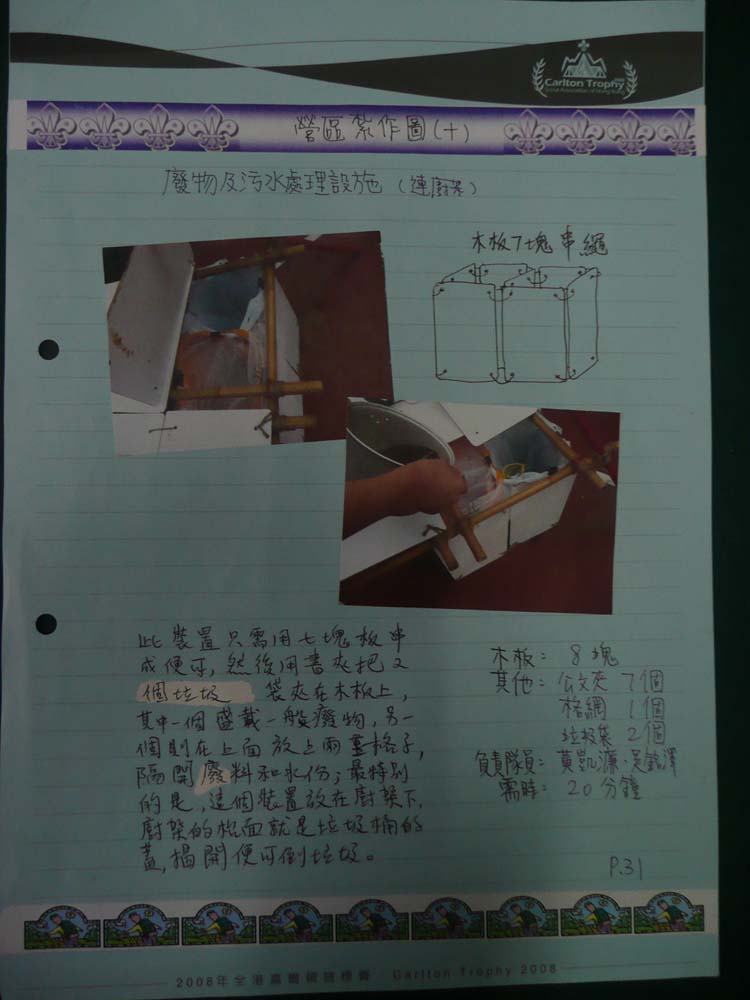 Carlton Trophy
Scout Association of Hong Kong
營區紮作圖(十)
廢物及污水處理設施 (連廚架)
木板7塊串繩
此裝置只需用七塊板串
成便可,然後用書夾把2
個垃圾 袋夾在木板上,
其中一個盛載一般廢物,另一
個則在上面放上兩層格子,
隔開廢料和水份;最特別
的是,這個裝置放在廚架下,
廚架的枱面就是垃圾桶的
蓋,揭開便可倒垃圾。
木板: 8塊
其他: 公文夾 7個
格網 1個
垃圾袋 2個
負責隊員: 黃凱濂·吳銘澤
需時: 20分鐘
P.31
2008年全港嘉爾頓錦標賽 Carlton Trophy 2008